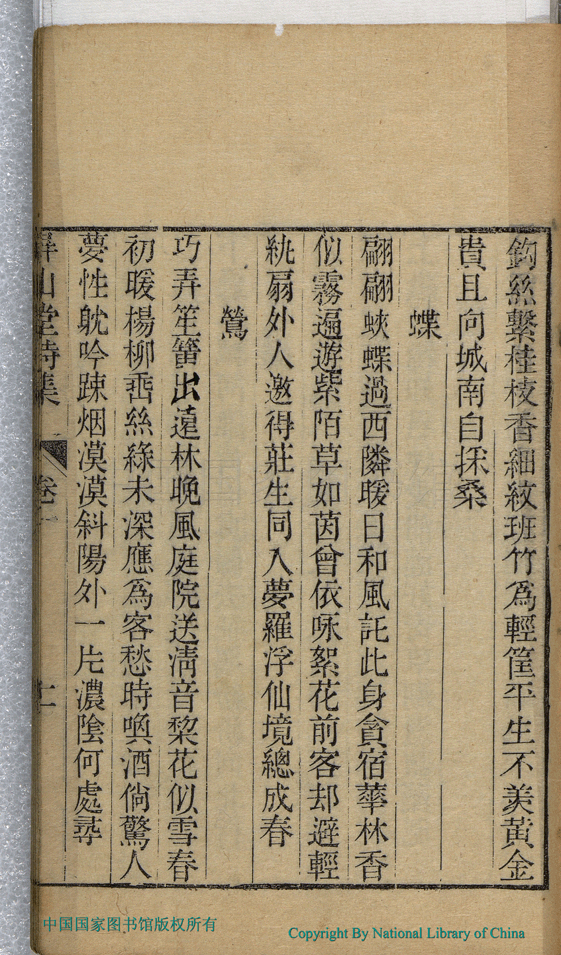 鈎絲繫桂枝香細紋班竹爲輕筐平生不羨黃金
貴且向城南自採桑
蝶
翩翩蛺蝶過西隣暖日和風託此身貪宿華林香
似霧遍遊紫陌草如茵曾依咏絮花前客却避輕
紈扇外人邀得莊生同入夢羅浮仙境總成春
鶯
巧弄笙簧出遠林晚風庭院送淸音棃花似雪春
初暖楊柳垂絲綠未深應爲客愁時喚酒倘驚人
夢性躭吟踈烟漠漠斜陽外一片濃陰何處尋
山堂詩集
卷
中国国家图书馆版权所有
Copyright By National Library of China